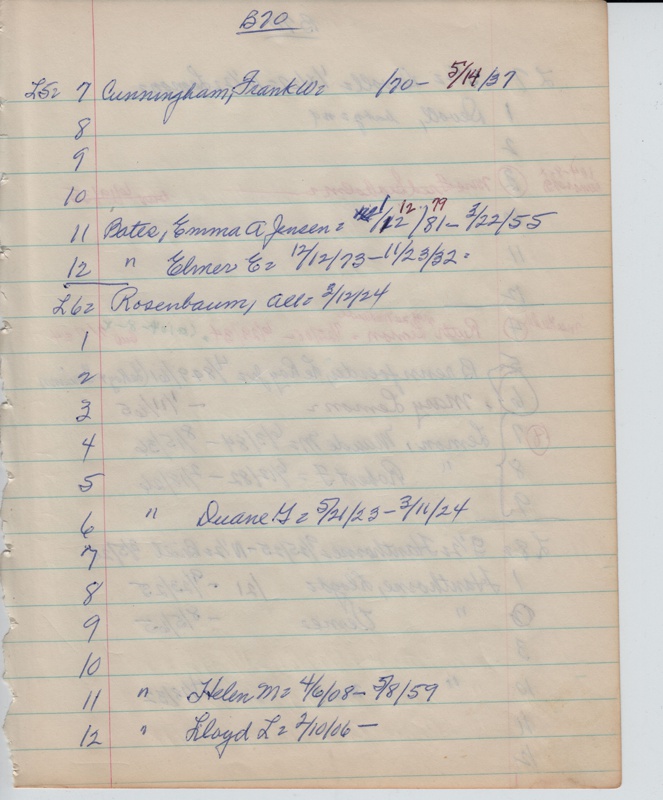 B70
L5= 7 Cunningham, Frank W= /70- 5/14/37
8
9
10
11 Bates, Emma A Jensen= 1/12/81- 12 79 3/22/55
12 " Elmer E= 12/12/73-11/23/32=
L6= Rosenbaum, All= 3/12/24
1
2
3
4
5
6 " Duane G= 5/21/23-3/11/24
7
8
9
10
11 " Helen M= 4/6/08- 5/8/59
12 " Lloyd L= 2/10/06-